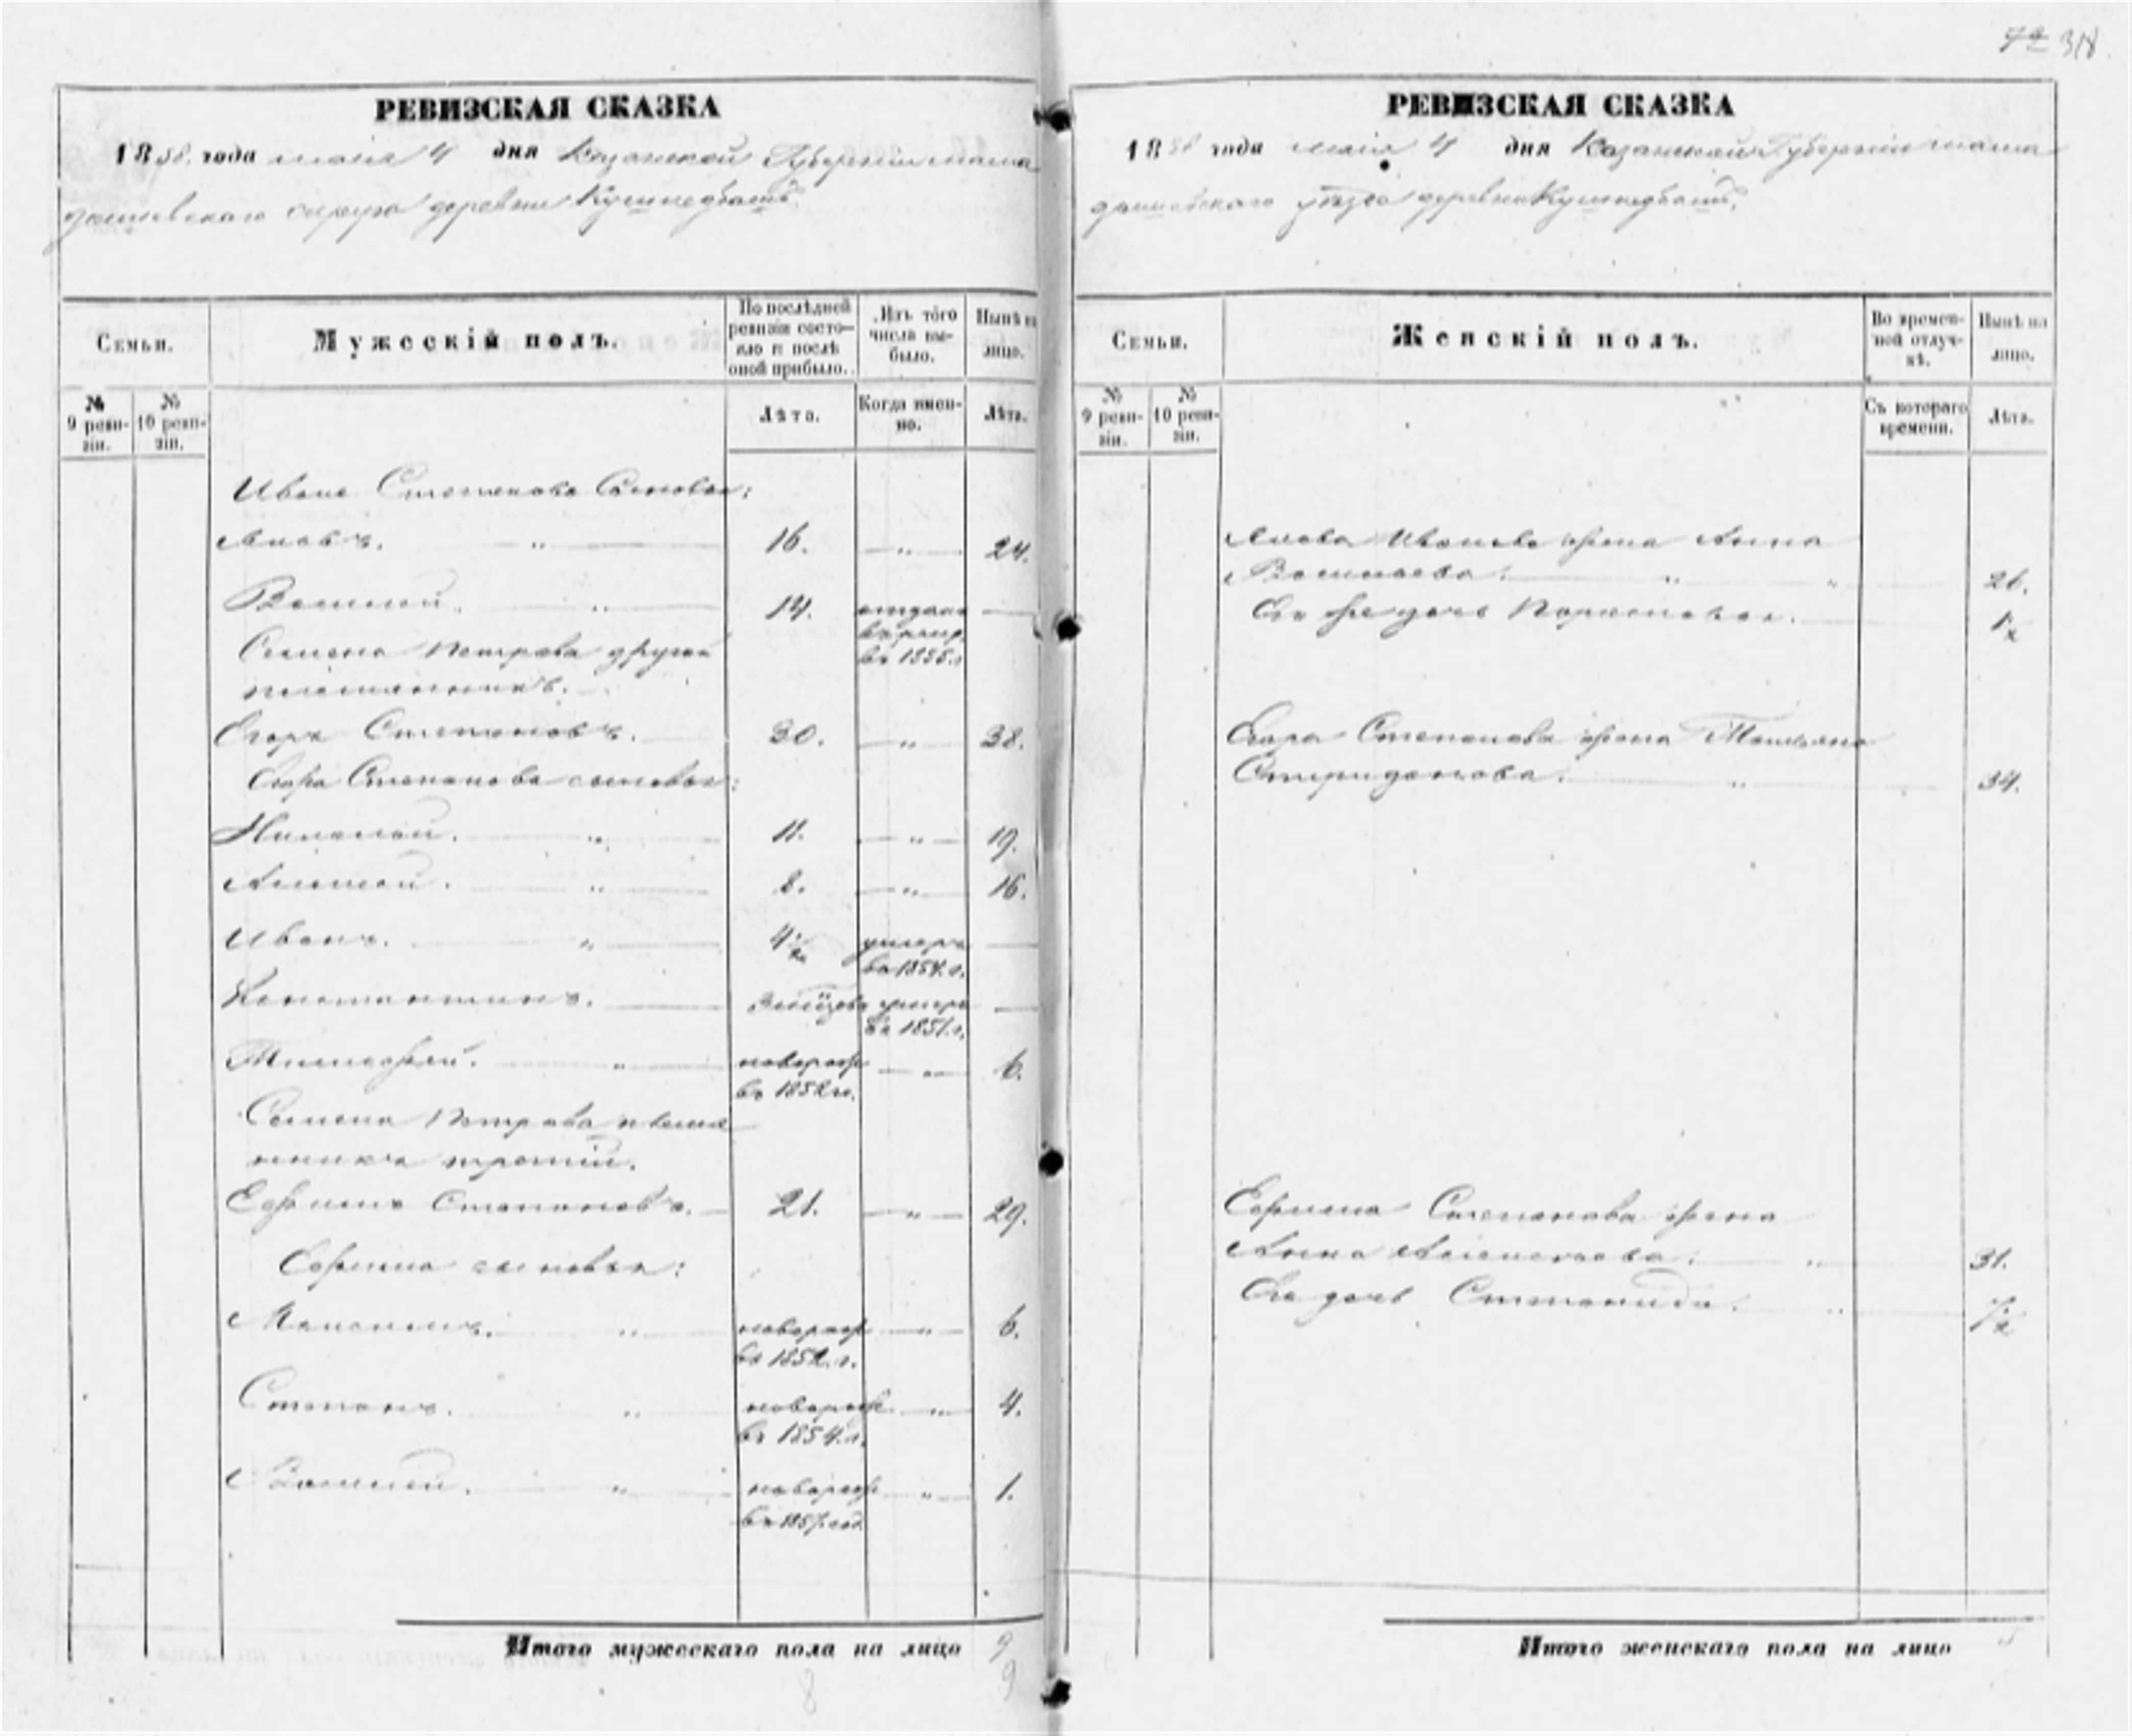 318
РЕВИЗСКАЯ СКАЗКА
1858 года маія 4 дня Казанской Губерніи мама
дышевскаго округа деревни
Семьи.
Мужескій полъ.
По послѣдней ревизіи состо-яло и послѣ оной прибыло.
Изъ того числа вы-было.
Нынѣ на лицо.
№ 9 реви-зіи.
№ 10 реви-зіи.
Лѣта.
Когда имен-но.
Лѣта.
Ивана Степанова сыновья:
Яковъ. 16. — " — 24.
Василей. 14. отданъ въ рекр. въ 1855 г.
Семена Петрова другой
племянникъ.
Егоръ Степановъ. 30. — " — 38.
Егора Степанова сыновья:
Николай. 11. — " — 19.
Алексей. 8. — " — 16.
Иванъ. 4 1/2 умеръ въ 1854 г.
Константинъ. умеръ въ 1851 г.
Тимофей. новорож въ 1852 г. — " — 6.
Семена Петрова племя
нникъ третій.
Ефимъ Степановъ. 21. — " — 29.
Ефима сыновья:
Максимъ. новорож въ 1852 г. — " — 6.
Степанъ. новорож въ 1854 г. — " — 4.
Василей. новорож въ 1857 год — " — 1.
Итого мужескаго пола на лицо 9
8 9
РЕВИЗСКАЯ СКАЗКА
1858 года маія 4 дня Казанской Губерніи мама
дышевскаго уѣзда деревни
Семьи.
Женскій полъ.
Во времен-ной отлуч-кѣ.
Нынѣ на лицо.
№ 9 реви-зіи.
№ 10 реви-зіи.
Съ котораго времени.
Лѣта.
Якова Иванова жена Анна
Васильева. 26.
дочь
Егора Степанова жена Татьяна
Спиридонова. 34.
Ефима Степанова жена
Анна Алексеева. 31.
Его дочь Степанида.
Итого женскаго пола на лицо